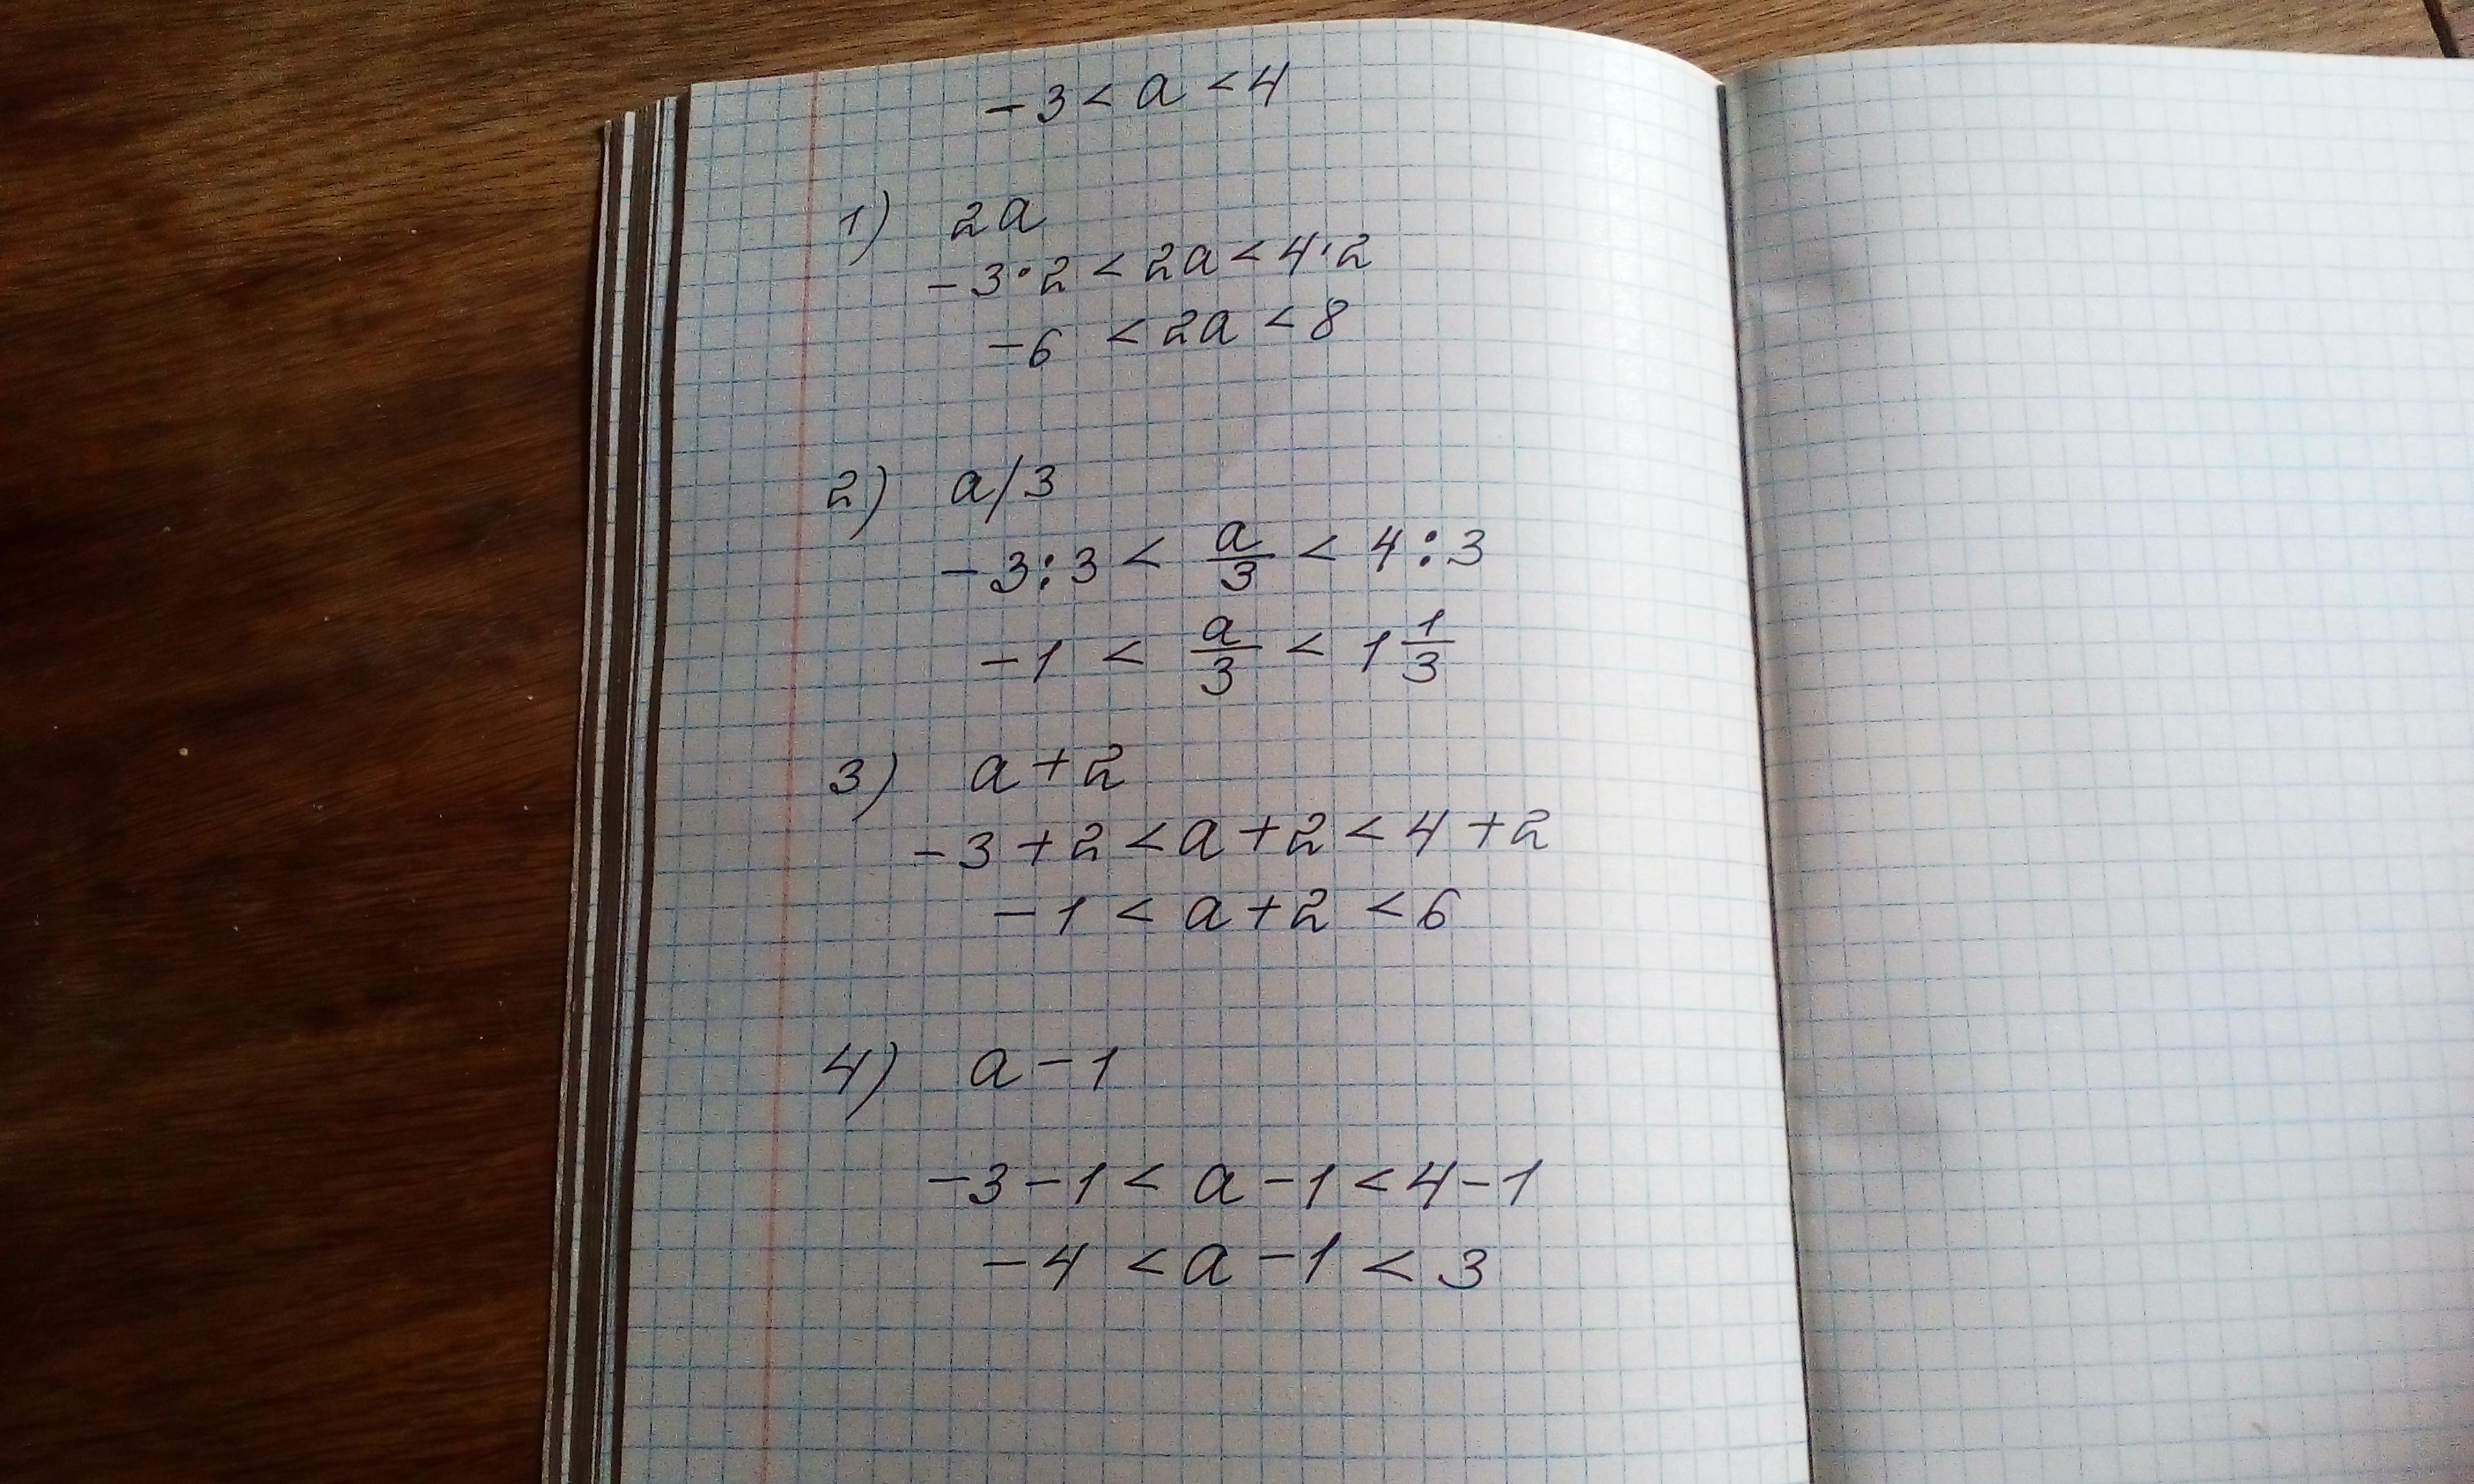 -3 < a < 4
1) 2a
-3·2 < 2a < 4·2
-6 < 2a < 8
2) a/3
-3:3 < a/3 < 4:3
-1 < a/3 < 1 1/3
3) a+2
-3+2 < a+2 < 4+2
-1 < a+2 < 6
4) a-1
-3-1 < a-1 < 4-1
-4 < a-1 < 3